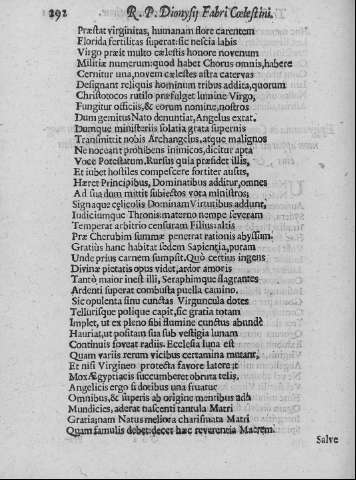 292 R. P. Dionysij Fabri Cœlestini.
Præstat virginitas, humanam flore carentem
Florida fertilitas superat: sic nescia labis
Virgo præit multo cælestis honore novenum
Militiæ numerum: quod habet Chorus omnis, habere
Cernitur una, novem cælestes astra catervas
Designant reliquis hominum tribus addita, quorum
Christotocos rutilo præfulget lumine Virgo,
Fungitur officiis, & eorum nomine, nostros
Dum gemitus Nato denuntiat, Angelus extat.
Dumque ministeriis solatia grata supernis
Transmittit nobis Archangelus, atque malignos
Ne noceant prohibens inimicos, dicitur apta
Voce Potestatum, Rursus quia præsidet illis,
Et iubet hostiles compescere fortiter ausus,
Hæret Principibus, Dominatibus additur, omnes
Ad sua dum mittit subiectos vota ministros;
Signaque cęlicolis Dominam Virtutibus addunt,
Iudiciumque Thronis: materno nempe severam
Temperat arbitrio censuram Filius: altis
Præ Cherubim summæ penetrat rationis abyssum.
Gratius hanc habitat sedem Sapientia, puram
Unde prius carnem sumpsit. Quò certius ingens
Divinæ pietatis opus videt, ardor amoris
Tantò maior inest illi, Seraphimque flagrantes
Ardenti superat combusta puella camino.
Sic opulenta sinu cunctas Virguncula dotes
Tellurisque polique capit, sic gratia totam
Implet, ut ex pleno sibi flumine cunctus abundè
Hauriat, ut positam sua sub vestigia lunam
Continuis foveat radiis. Ecclesia luna est
Quam variis rerum vicibus certamina mutant,
Et nisi Virgineo protecta favore lateret
Mox Ægyptiacis succumberet obruta telis.
Angelicis ergo si dotibus una fruatur
Omnibus, & superis ab origine mentibus
Mundicies, aderat nascenti tantula Matri
Gratia; nam Natus meliora charismata Matri
Quam famulis debet: decet hæc reverentia Matrem.
Salve